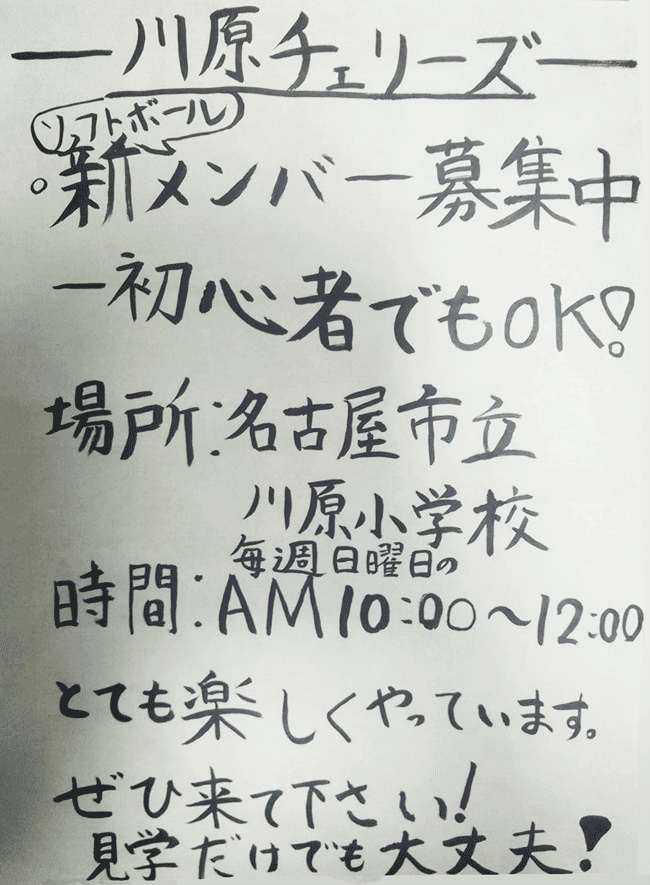 ー川原チェリーズー
ソフトボール
○新メンバー募集中
ー初心者でもOK!
場所:名古屋市立
川原小学校
毎週日曜日の
時間:AM10:00〜12:00
とても楽しくやっています。
ぜひ来て下さい!
見学だけでも大丈夫!